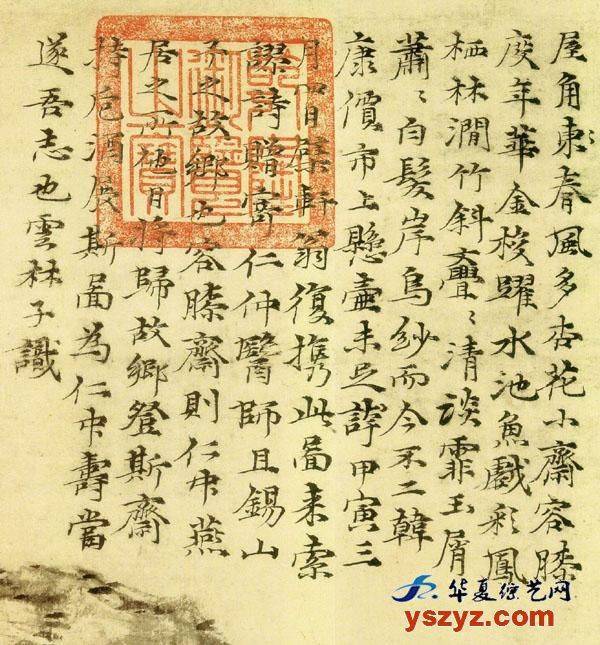 屋角東春風多杏花小齋容膝
度年華金梭躍水池魚戲彩鳳
栖林澗竹斜亹〻清談霏玉屑
蕭〻白髮岸烏紗而今不二韓
康價市上懸壺未足誇甲寅三
月四日檗軒翁復携此啚来索
謬詩贈寄仁仲醫師且錫山
予之故鄉也容膝齋則仁中燕
居之所他日將歸故鄉登斯齋
持巵酒展斯啚為仁中壽當
遂吾志也雲林子識
华夏综艺网
yszyz.com